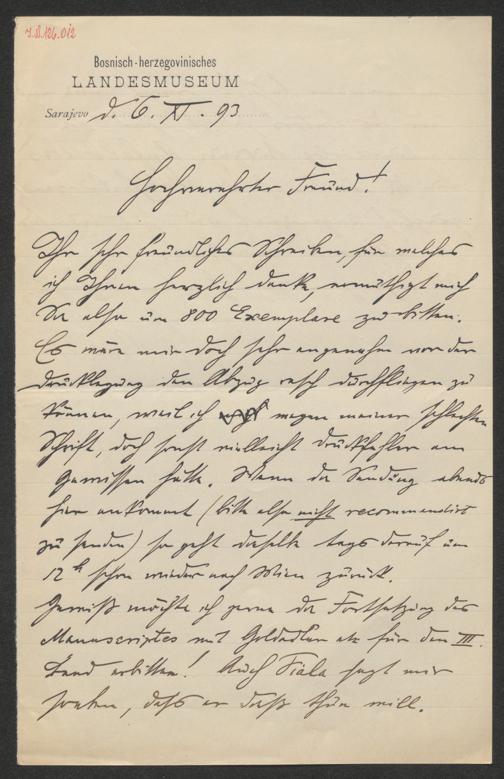 Bosnisch-herzegovinisches
LANDESMUSEUM
Sarajevo d. 6. XI. 93
Hochverehrter Freund!
Ihr sehr freundliches Schreiben, für welches
ich Ihnen herzlich danke, ermuthigt mich
Sie also um 800 Exemplare zu bitten.
Es wäre mir doch sehr angenehm vor der
Drucklegung den Abzug rasch durchfliegen zu
können, weil ich wegen meiner schlechten
Schrift, doch sonst vielleicht Druckfehler am
Gewissen hätte. Wenn die Sendung abends
hier ankommt (bitte also nicht recommandirt
zu senden) so geht dieselbe tags darauf um
12 h schon wieder nach Wien zurück.
Gewiß möchte ich gerne die Fortsetzung des
Manuscriptes mit Goldadler etc für den III.
Band erbitten! Auch Fiala sagt mir
soeben, daß er daß thun will.